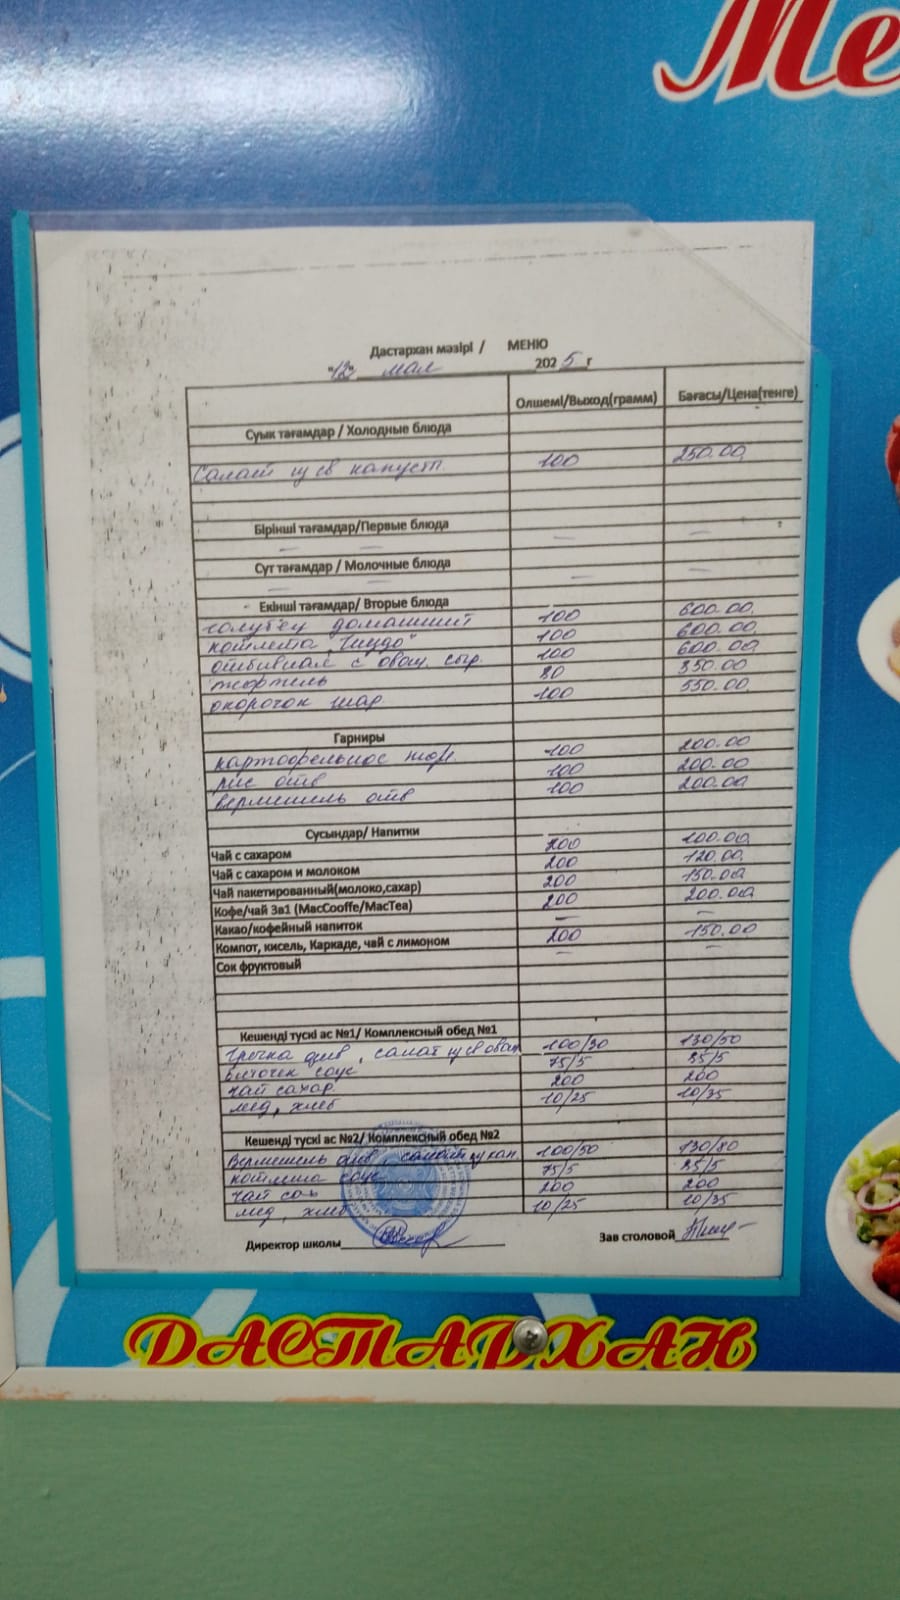 Ме
Дастархан мәзірі / МЕНЮ
"12" мая 2025 г
Өлшемі/Выход(грамм) Бағасы/Цена(тенге)
Суық тағамдар / Холодные блюда
Салат из св капусты 100 250.00
Бірінші тағамдар/Первые блюда
— — — —
Сүт тағамдар / Молочные блюда
— — — —
Екінші тағамдар/ Вторые блюда
голубец домашний 100 600.00
котлета "Чудо" 100 600.00
отбивная с овощ. сыр. 100 600.00
тефтель 80 350.00
окорочок жар. 100 550.00
Гарниры
картофельное пюр. 100 200.00
рис отв 100 200.00
вермишель отв 100 200.00
Сусындар/ Напитки
Чай с сахаром 200 100.00
Чай с сахаром и молоком 200 120.00
Чай пакетированный(молоко,сахар) 200 150.00
Кофе/чай 3в1 (MacCooffe/MacTea) 200 200.00
Какао/кофейный напиток — —
Компот, кисель, Каркаде, чай с лимоном 200 150.00
Сок фруктовый — —
Кешенді түскі ас №1/ Комплексный обед №1
Гречка отв, салат из св овощ 100/30 130/50
соус 75/5
чай сахар 200 200
мёд, хлеб 10/25 10/35
Кешенді түскі ас №2/ Комплексный обед №2
Вермишель отв, салат из кап. 100/50 130/80
котлета соус 75/5
чай 200 200
мёд, хлеб 10/25 10/35
Директор школы Зав столовой
ДАСТАРХАН